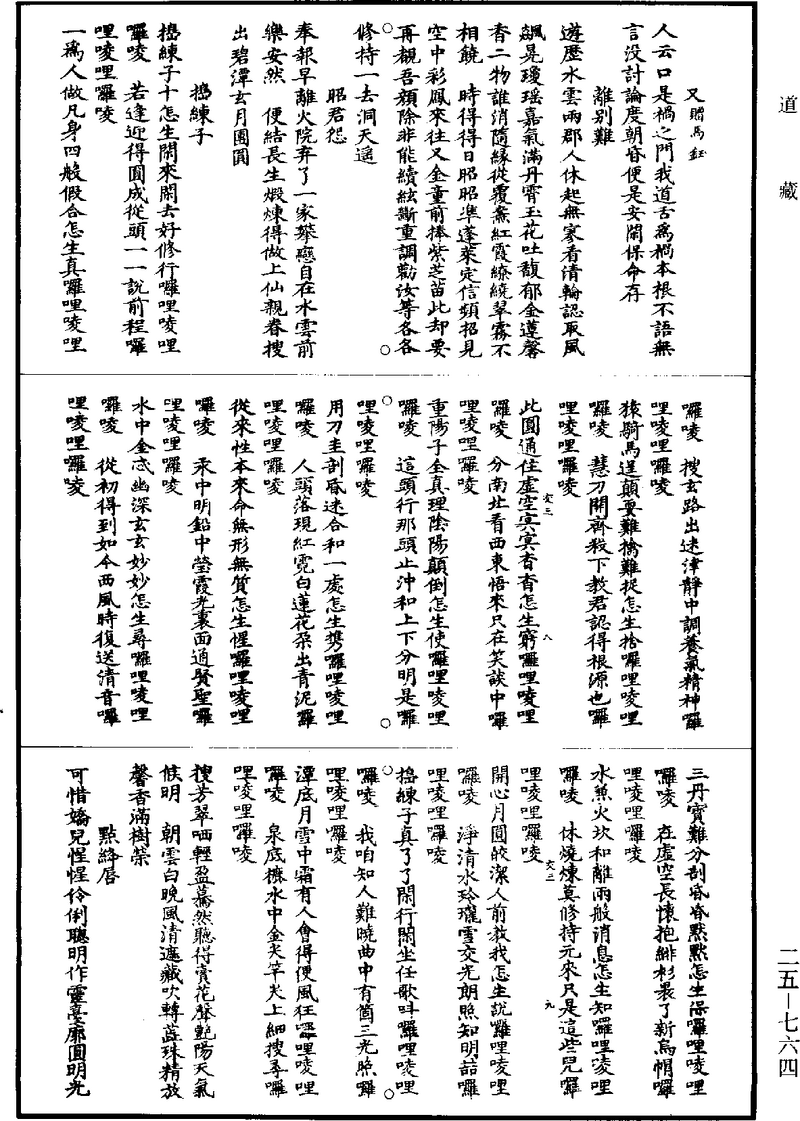 道藏
又贈馬鈺
人云口是禍之門我道舌爲禍本根不語無
言没討論度朝昏便是安閑保命存
離別難
遊歷水雲兩郡人休起無寒看清輪認取風
飆晃瓊瑶嘉氣滿丹霄玉花吐馥郁金蓮馨
香二物誰消隨緣從覆燾紅霞繚繞翠霧不
相饒　時得得日昭昭準蓬萊定信頻招見
空中彩鳳來往又金童前捧紫芝苗此却要
再覩吾顔除非能續絃斷重調勸汝等各各
修持一去洞天遥
昭君怨
奉報早離火院弃了一家攀戀自在水雲前
樂安然　便結長生煅煉得做上仙親眷搜
出碧潭玄月團圓
搗練子
搗練子十怎生閑來閑去好修行囉哩唆哩
囉唆　若逢近得圓成從頭一一說前程囉
哩唆哩囉唆
一爲人做凡身四般假合怎生真囉哩唆哩
囉唆　搜玄路出迷津靜中調養氣精神囉
哩唆哩囉唆
猿騎馬逞顛耍難擒難捉怎生捨囉哩唆哩
囉唆　慧刀開齊殺下教君認得根源也囉
哩唆哩囉唆
此圓通住虛空冥冥杳杳怎生窮囉哩唆哩
交三　八
囉唆　分南北看西東悟來只在笑談中囉
哩唆哩囉唆
重陽子全真理陰陽顛倒怎生使囉哩唆哩
囉唆　這頭行那頭止沖和上下分明是囉
哩唆哩囉唆
用刀圭剖昏迷合和一處怎生携囉哩唆哩
囉唆　人頭落現紅霓白蓮花朶出青泥囉
哩唆哩囉唆
從來性本來命無形無質怎生惺囉哩唆哩
囉唆　汞中明鉛中瑩霞光裏面通賢聖囉
哩唆哩囉唆
水中金忒幽深玄玄妙妙怎生尋囉哩唆哩
囉唆　從初得到如今西風時復送清音囉
哩唆哩囉唆
三丹寶難分剖昏昏默默怎生保囉哩唆哩
囉唆　在虛空長懷抱緋衫裹了新烏帽囉
哩唆哩囉唆
水煎火坎和離兩般消息怎生知囉哩唆哩
囉唆　休燒煉莫修持元來只是這些兒囉
交三　九
哩唆哩囉唆
開心月圓皎潔人前教我怎生說囉哩唆哩
囉唆　淨清水玲瓏雪交光朗照知明喆囉
哩唆哩囉唆
搗練子真了了閑行閑坐任歌叫囉哩唆哩
囉唆　我咱知人難曉曲中有箇三光照囉
哩唆哩囉唆
潭底月雪中霜有人會得便風狂囉哩唆哩
囉唆　泉底擦水中金尖竿尖上細搜尋囉
哩唆哩囉唆
搜芳翠哂輕盈驀然聽得賣花聲艷陽天氣
候明　朝雲白晚風清遮藏吹轉蕋珠精放
馨香滿樹榮
點絳唇
可惜嬌兒惺惺伶俐聰明作靈臺廓圓明光
二五－七六四